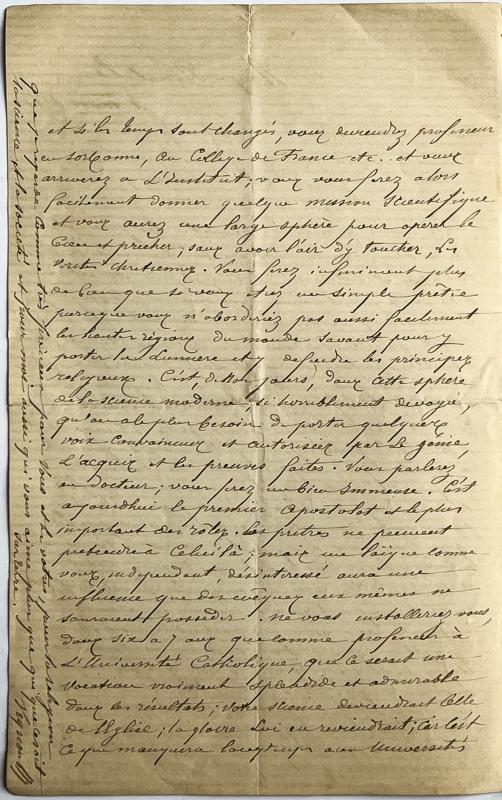 et si les temps sont changés, vous deviendrez professeur
en sorbonne, au College de France etc. et vous
arriverez a L'Institut; vous vous ferez alors
facilement donner quelque mission scientifique
et vous aurez une large sphère pour operer le
bien et prêcher, sans avoir l'air d'y toucher, les
verités chretiennes. Vous ferez infiniment plus
de bien que si vous etiez un simple prêtre
parceque vous n'aborderiez pas aussi facilement
les hautes régions du monde savant pour y
porter la Lumiere et y defendre les principes
religieux. C'est de nos jours, dans cette sphère
de la science moderne, si horriblement devoyée,
qu'on a le plus besoin de porter quelques
voix convaincues et autorisées par le génie,
L'acquis et les preuves faites. Vous parlerez
en docteur; vous ferez un bien immense. C'est
aujourdhui le premier apostolat et le plus
important des rôles. Les prêtres ne peuvent
pretendre à celui là; mais un laïque comme
vous, independant, desinteressé aura une
influence que des evêques eux mêmes ne
sauraient posseder. ne vous installeriez vous,
dans six a 7 ans que comme professeur à
L'Université Catholique, que ce serait une
vocation vraiment splendide et admirable
dans les resultats; votre science deviendrait celle
de L'Eglise; la gloire lui en reviendrait; car c'est
ce que manquera longtemps aux Universités
que je regarde comme très précieux pour vous et les votres, pour la religion
la science et la société et pour moi aussi qui vous aime plus que qui que ce soit
sur terre.